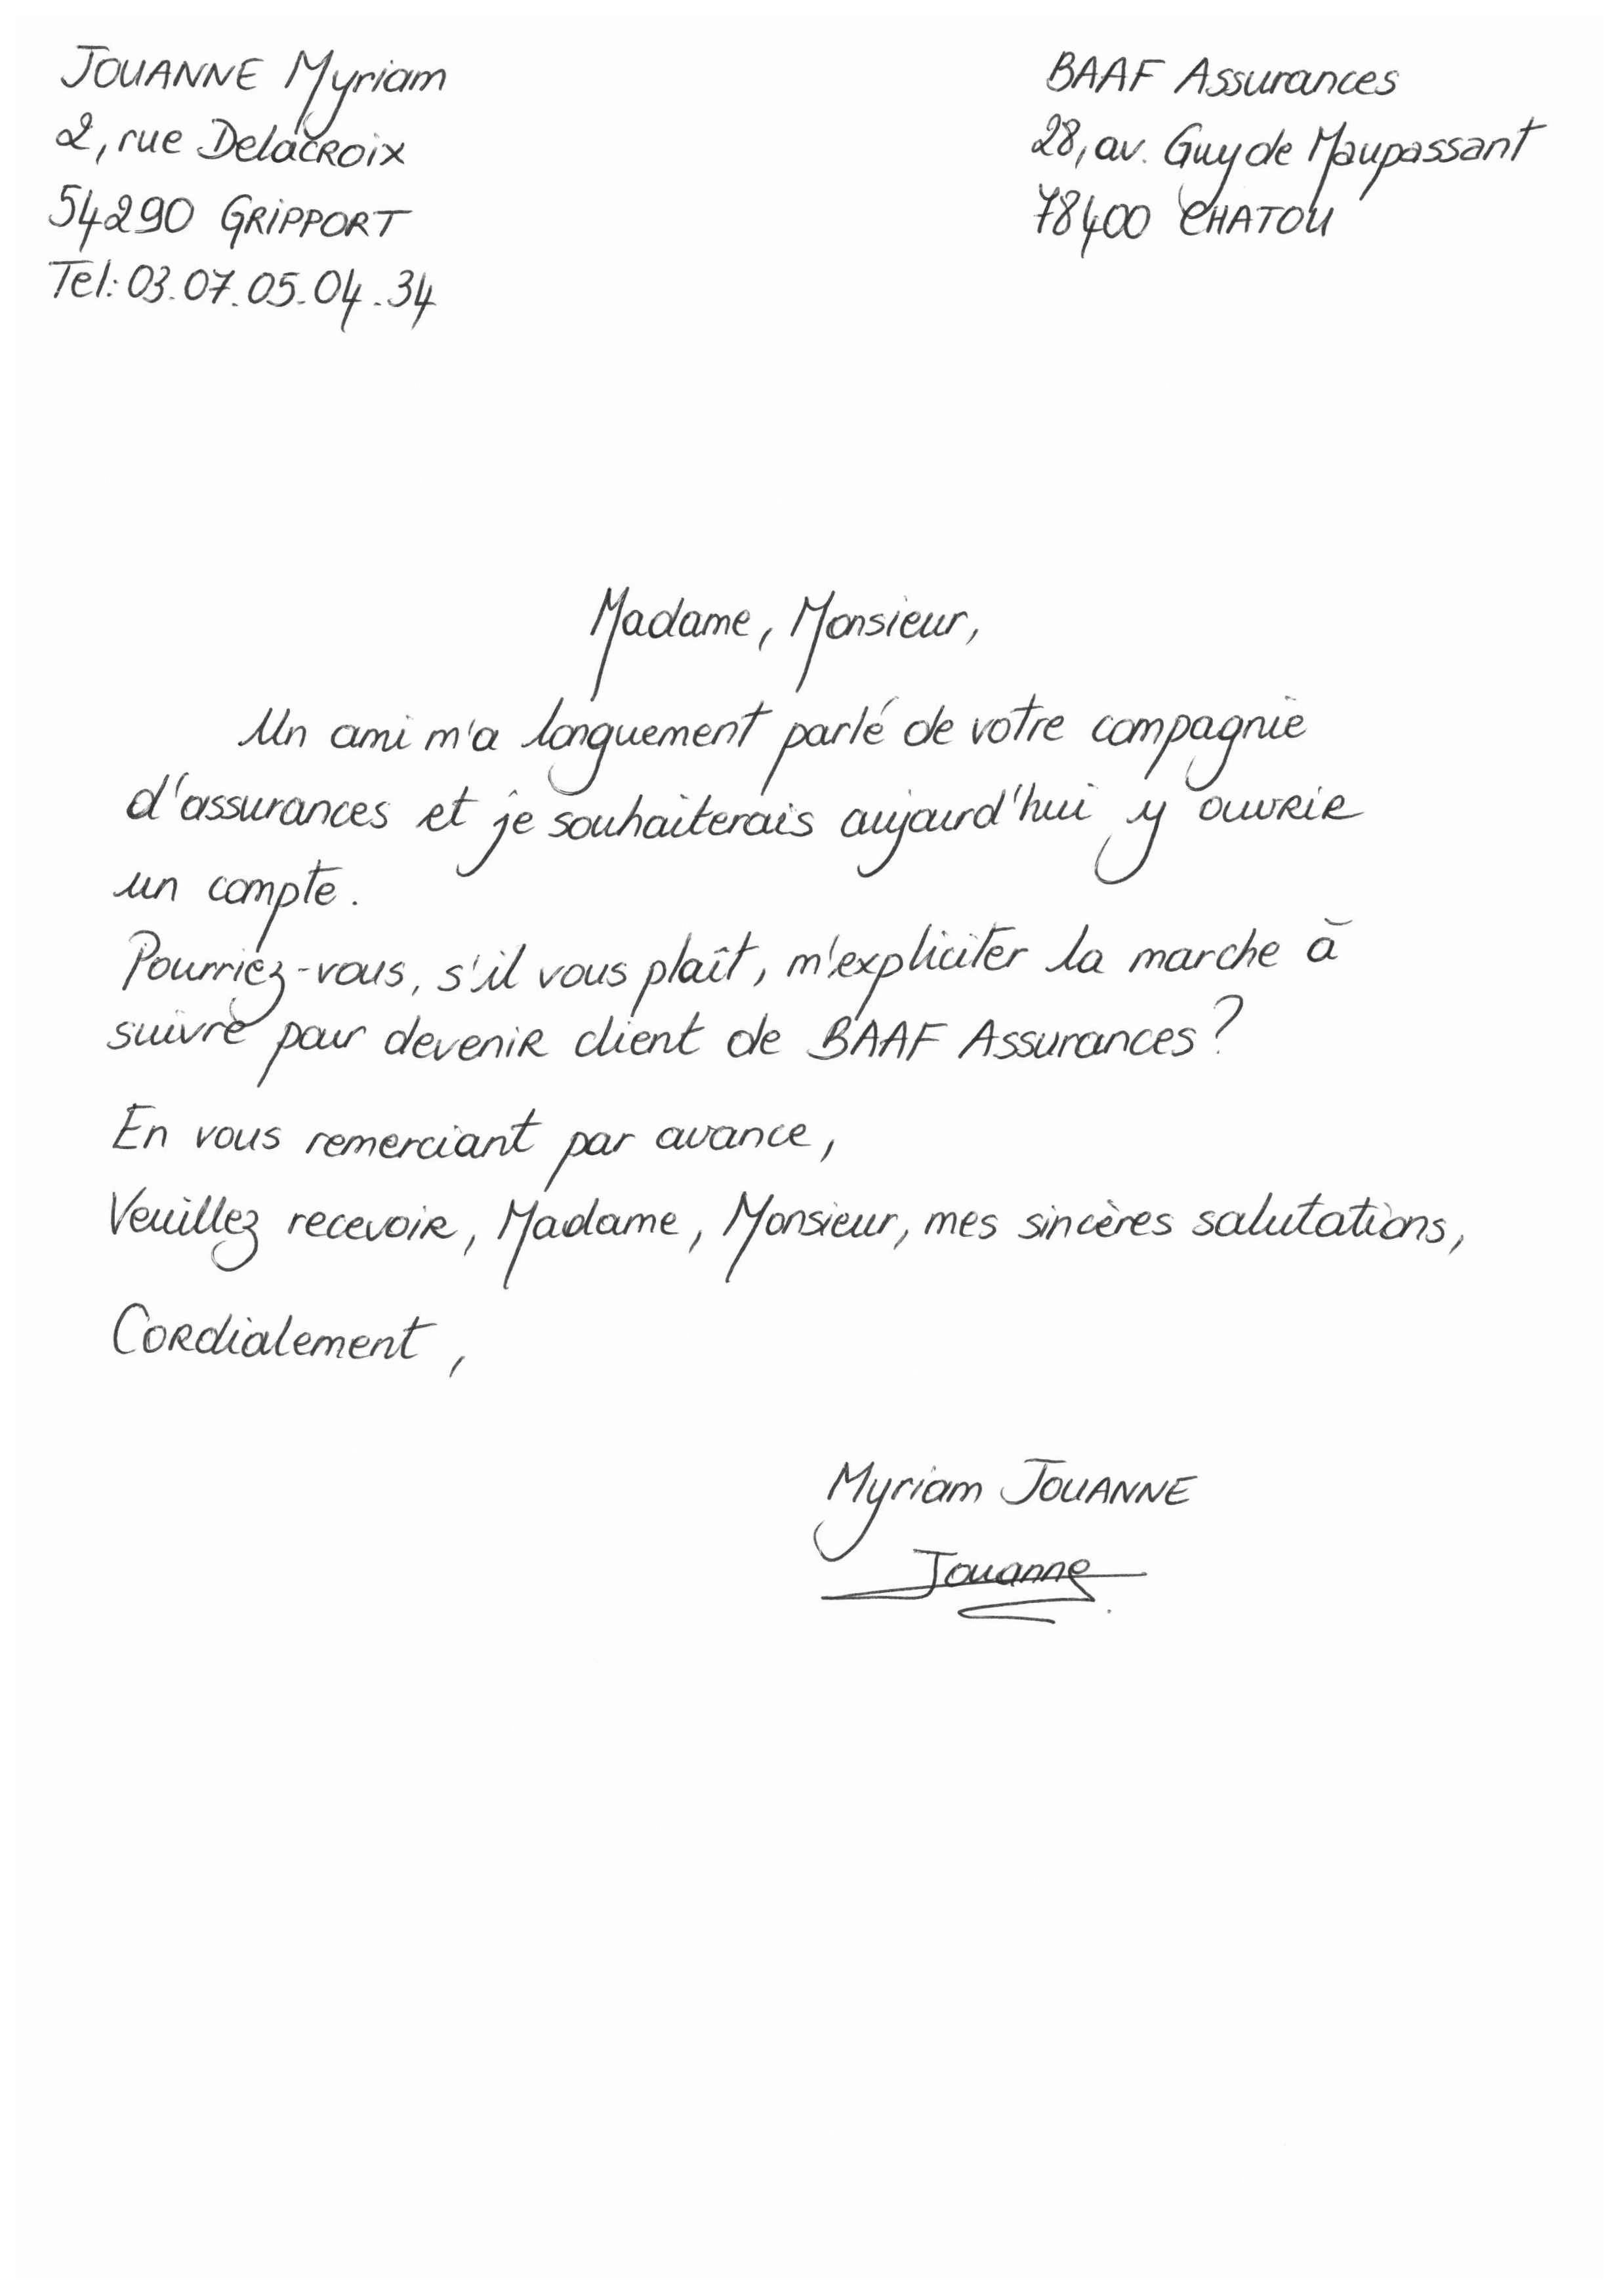 JOUANNE Myriam
2, rue Delacroix
54290 GRIPPORT
Tel: 03.07.05.04.34
BAAF Assurances
28, av. Guy de Maupassant
78400 CHATOU
Madame, Monsieur,
Un ami m'a longuement parlé de votre compagnie
d'assurances et je souhaiterais aujourd'hui y ouvrir
un compte.
Pourriez-vous, s'il vous plaît, m'expliciter la marche à
suivre pour devenir client de BAAF Assurances?
En vous remerciant par avance,
Veuillez recevoir, Madame, Monsieur, mes sincères salutations,
Cordialement,
Myriam JOUANNE
Jouanne